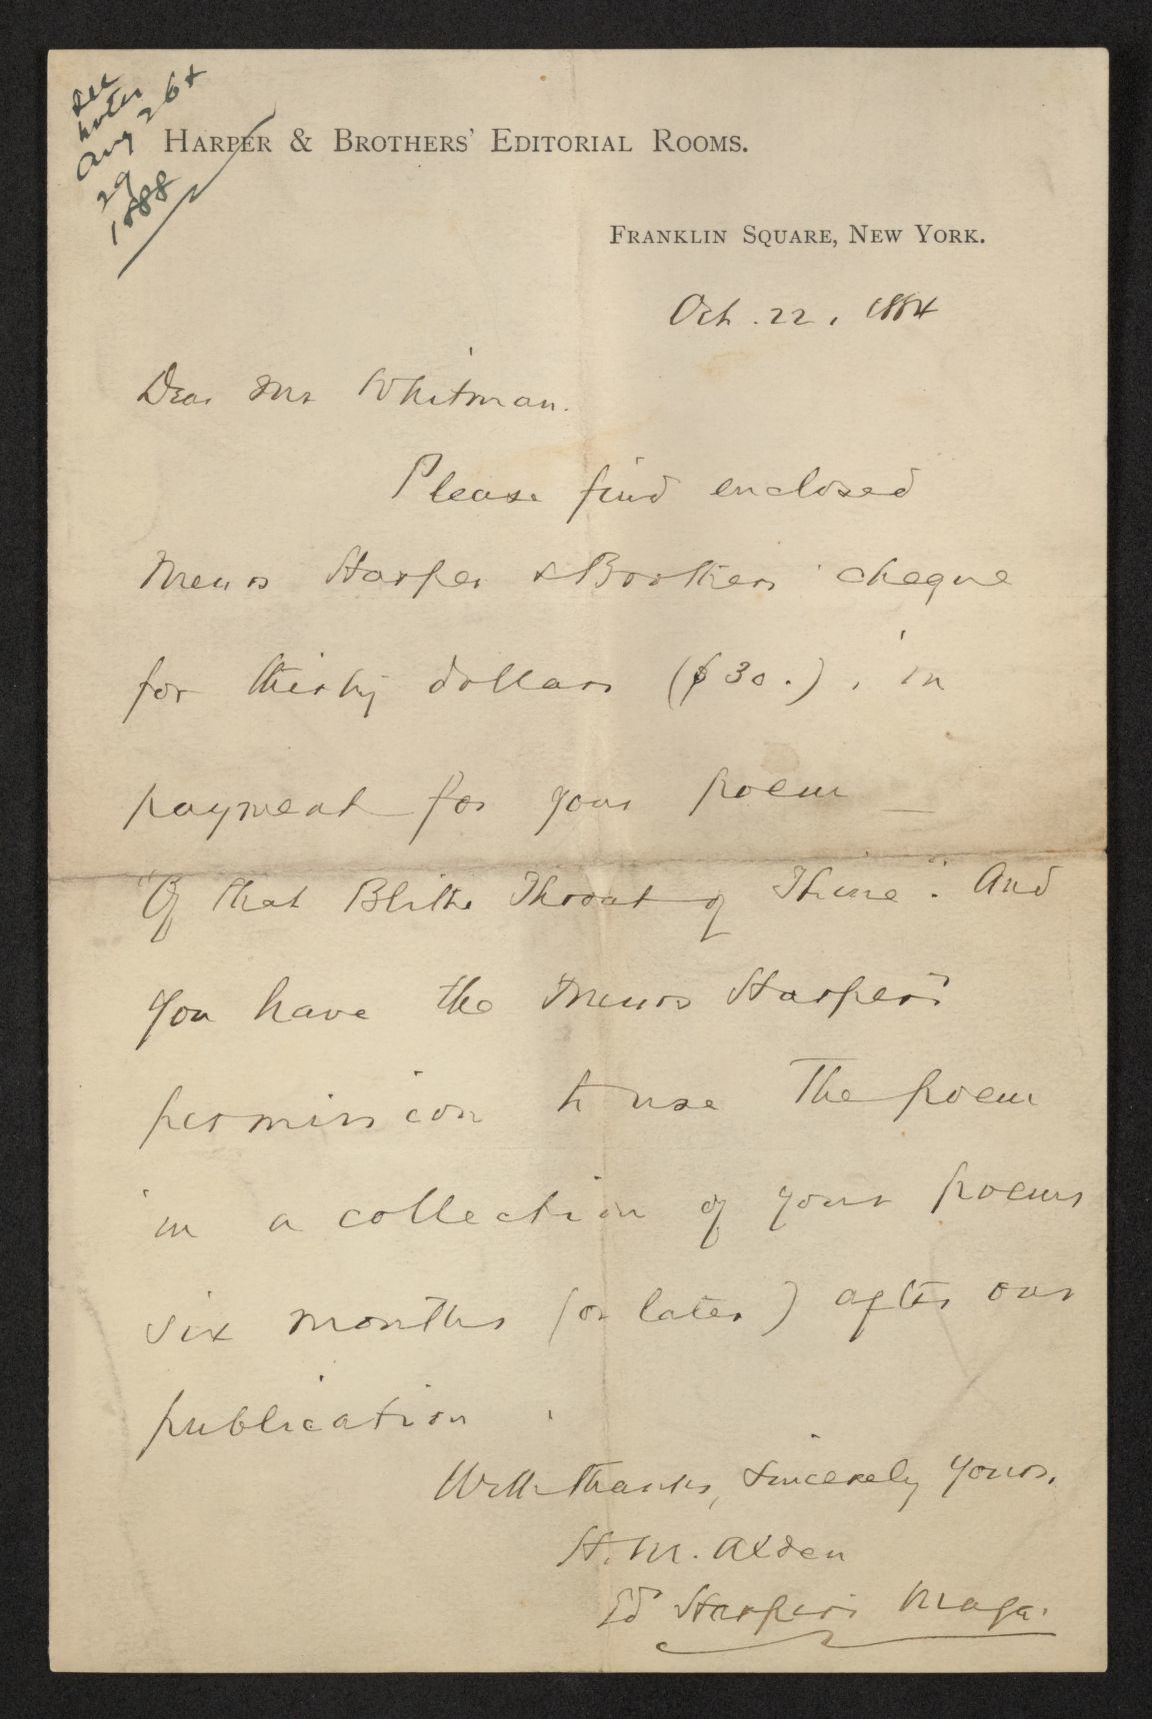 see
notes
Aug 26 &
29
1888
HARPER & BROTHERS' EDITORIAL ROOMS.
FRANKLIN SQUARE, NEW YORK.
Oct. 22, 1884
Dear Mr Whitman.
Please find enclosed
Messrs Harper & Brothers' cheque
for thirty dollars ($30.), in
payment for your poem
"Of that Blithe Throat of Thine". And
you have the Messrs Harpers'
permission to use the poem
in a collection of your poems
six months (or later) after our
publication.
With thanks, Sincerely yours,
H. M. Alden
Ed Harper's Maga.